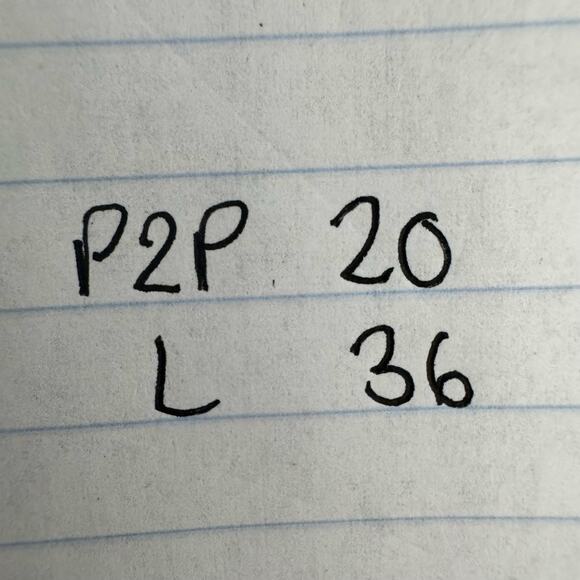 P2P 20
L 36